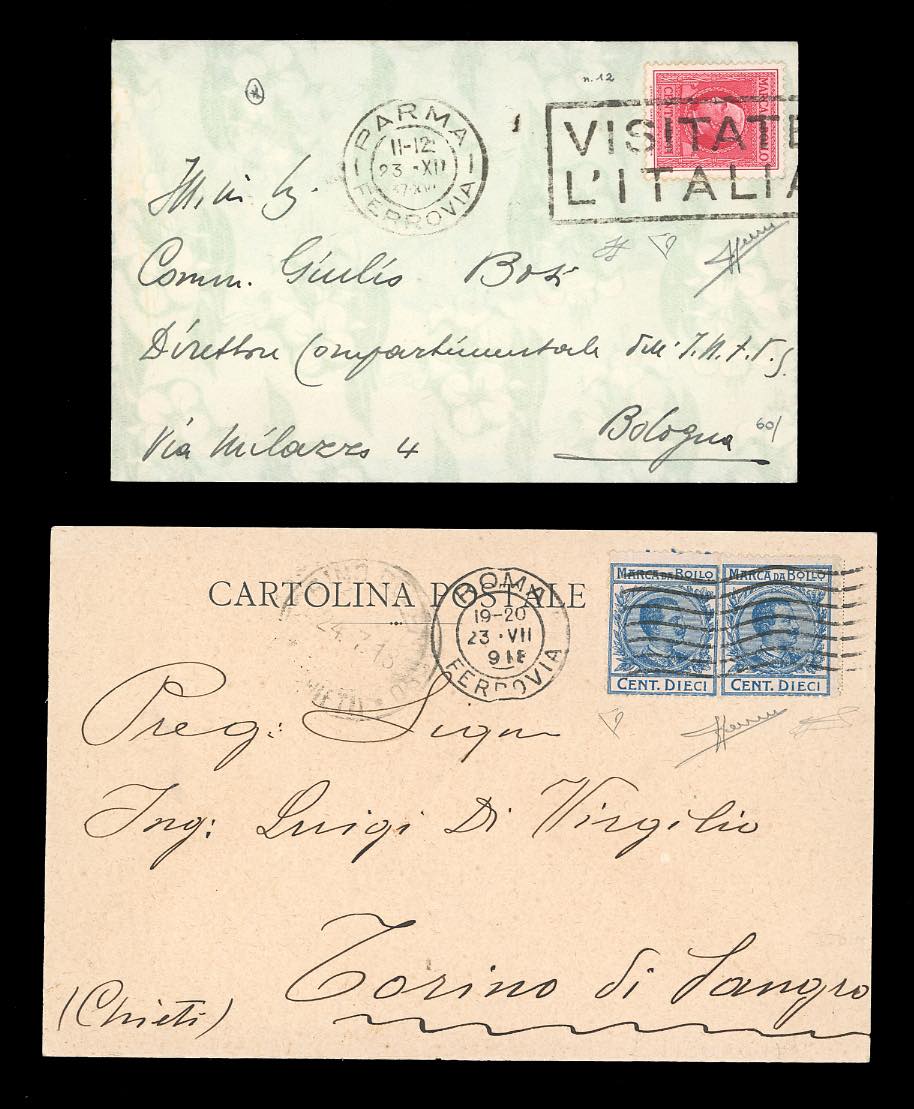 n. 12
PARMA
11-12
23 · XII
37·XVI
FERROVIA
VISITATE
L'ITALIA
MARCA DA BOLLO
CENT.
Comm. Giulio Bosi
Direttore Compartimentale dell' I.N.F.P.S.
Via Milazzo 4
Bologna
60/
CARTOLINA POSTALE
ROMA
19-20
23 · VII
918
FERROVIA
24.7.18
MARCA DA BOLLO
CENT. DIECI
MARCA DA BOLLO
CENT. DIECI
Preg: Sign
Ing: Luigi Di Virgilio
Torino di Sangro
(Chieti)